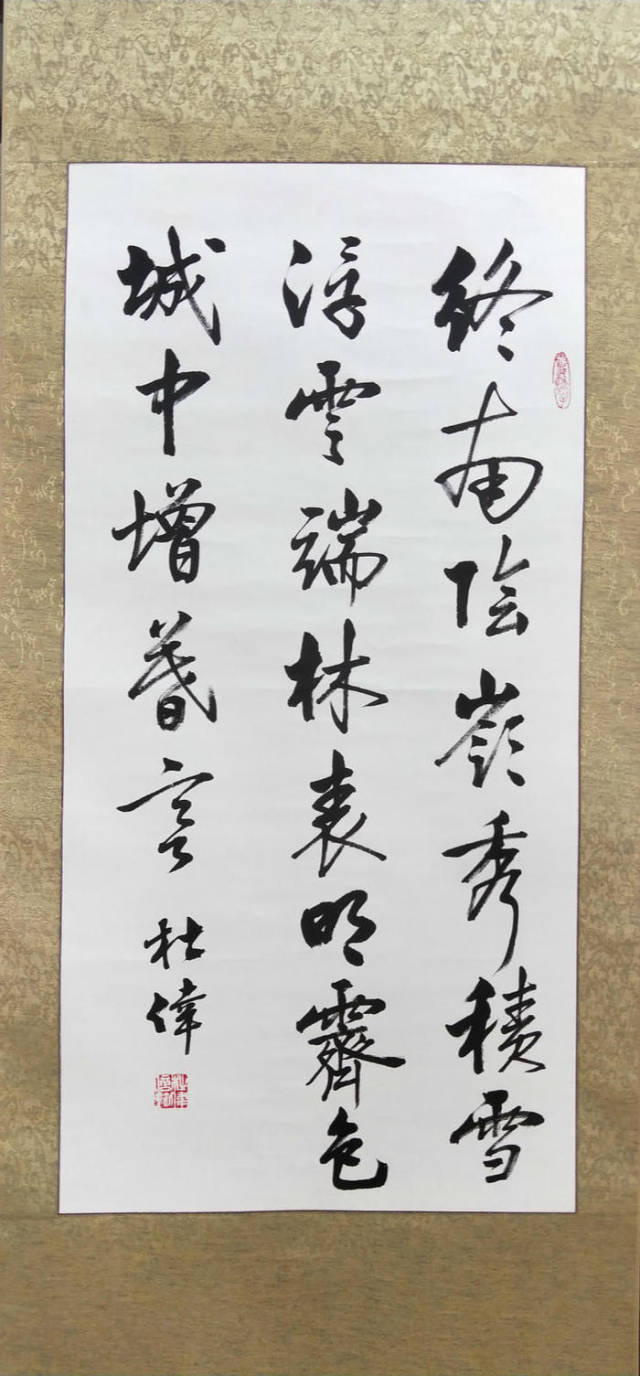 終南陰嶺秀積雪
浮雲端林表明霽色
城中增暮寒
杜偉